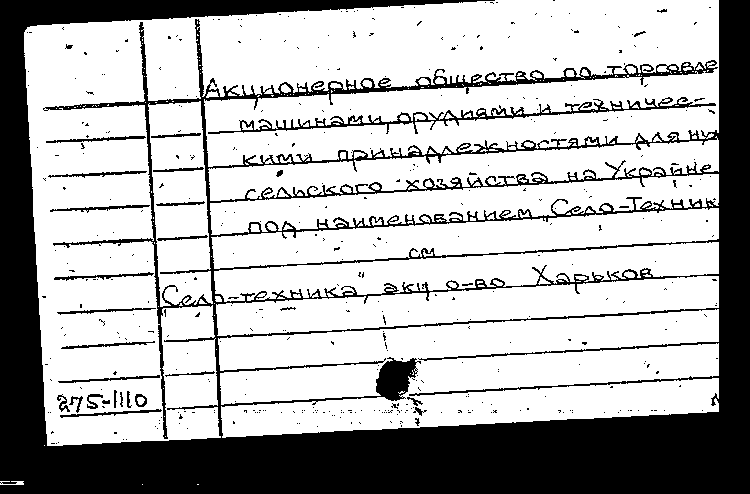 Акционерное общество по торговле
машинами, орудиями и техничес-
кими принадлежностями для нуж
сельского хозяйства на Украине
под наименованием „Село-Техник
см
„Село-техника", акц о-во Харьков
275-1110